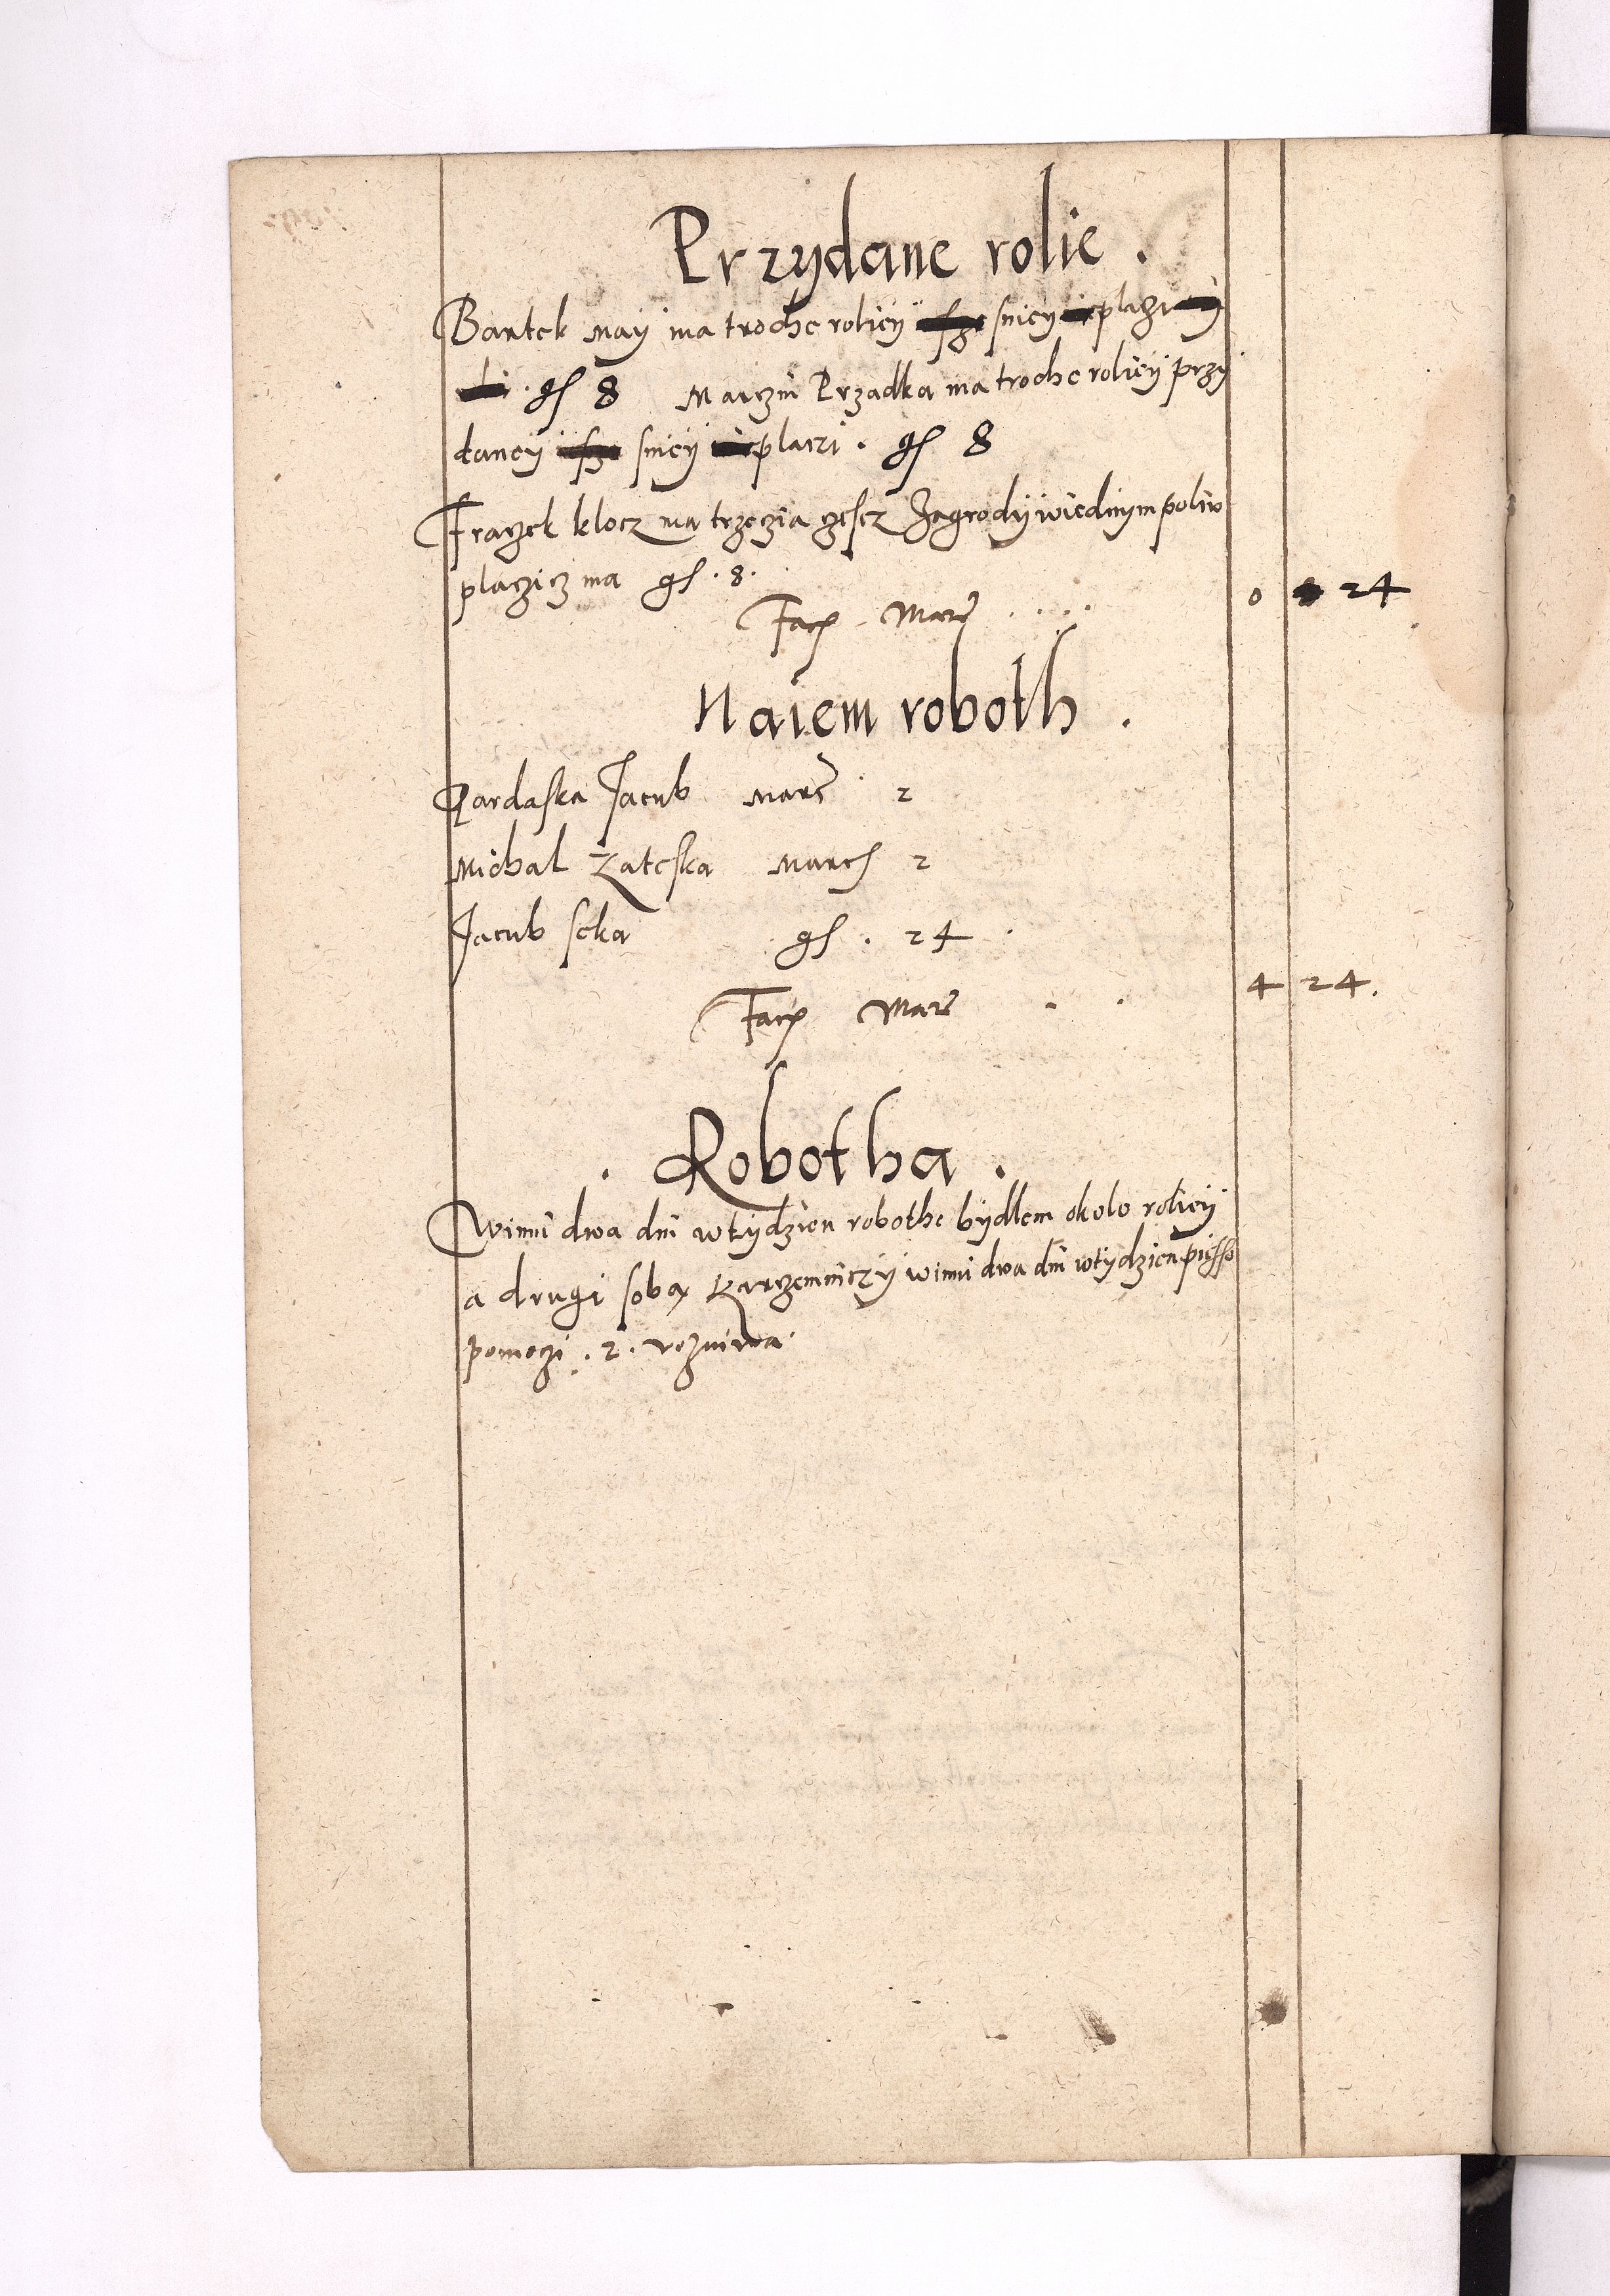 Przydane rolie .
Bartek May ma troche roliey sniey placzi
. gs 8 Marczin Przadka ma troche roliey przy
daney sniey placzi . gs 8
Fraczek klocz ma trzeczia czescz Zagrody wiednym poliw
placzicz ma gs . 8 .
Facit Marc . . . . 0 24
Naiem roboth .
Jacub Marc 2
Michal Zateska Marcs 2
Jacub seka gs . 24 .
Facit Marc . . 4 24 .
. Robotha .
Winni dwa dni wtydzien robothe bydlem okolo roliey
a drugi soba Karczemniczy winni dwa dni wtydzien piesso
pomoczi . 2 . wezniwa